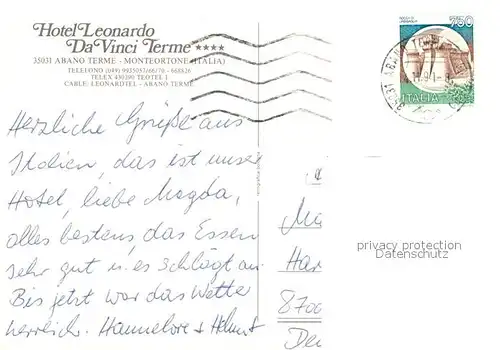 Hotel Leonardo
Da Vinci Terme ★★★★
35031 ABANO TERME - MONTEORTONE (ITALIA)
TELEFONO (049) 9935057/66/76 - 668826
TELEX 430390 TEOTEL I
CABLE: LEONARDTEL - ABANO TERME
750
ITALIA
Herzliche Grüße aus
Italien, das ist unser
Hotel, liebe Magda,
alles bestens, das Essen
sehr gut u. es schlägt an.
Bis jetzt war das Wetter
herrlich. Hannelore + Helmut
Ma
Har
8700
Deu
privacy protection
Datenschutz